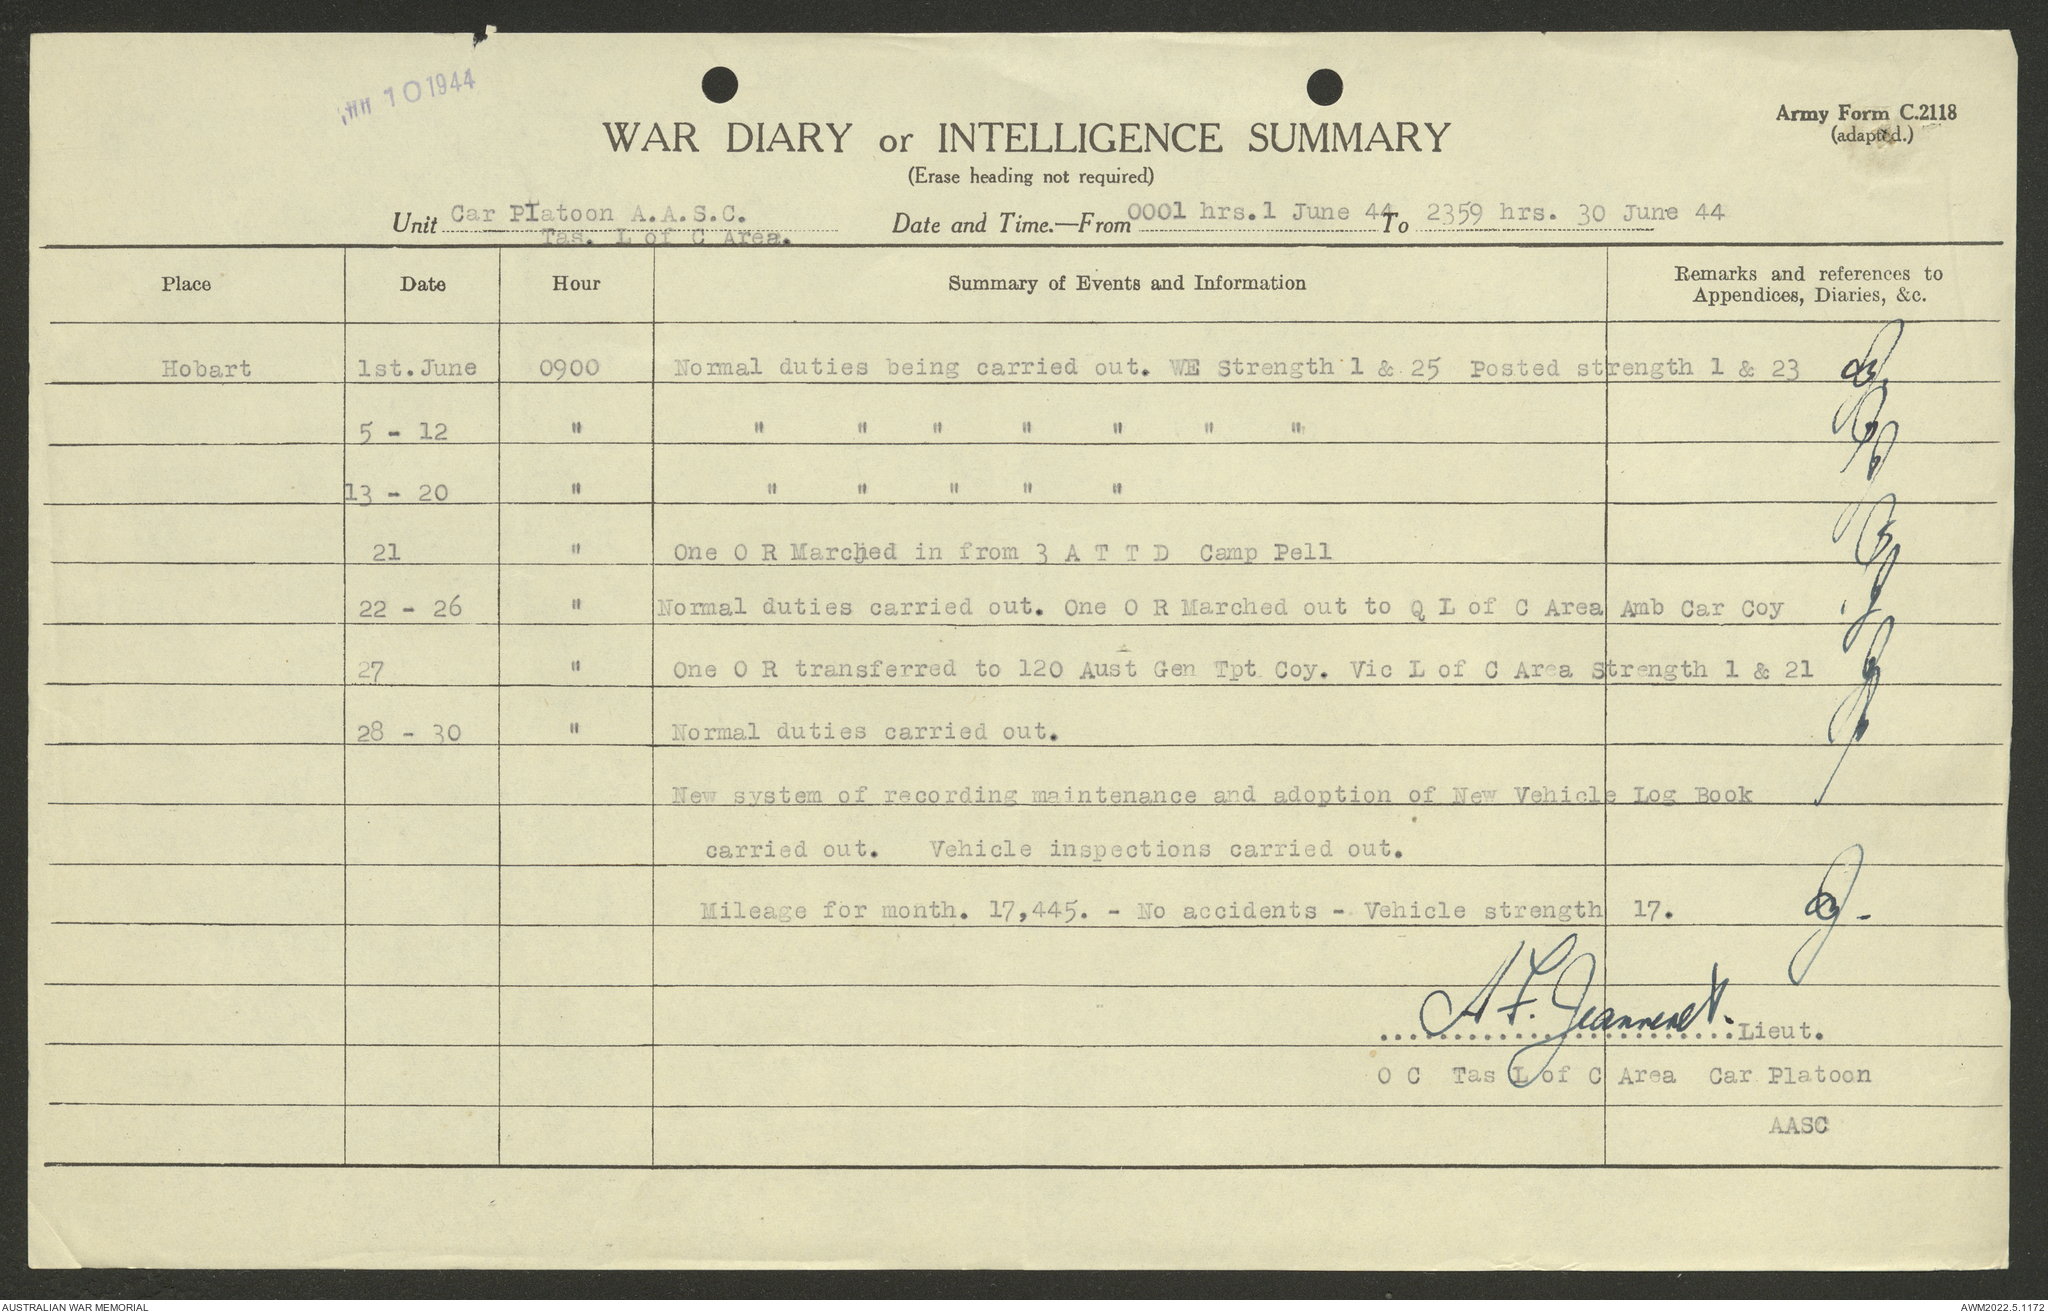 10 1944
Army Form C.2118
(adapted.)
WAR DIARY or INTELLIGENCE SUMMARY
(Erase heading not required)
Unit Car Platoon A.A.S.C. Date and Time.—From 0001 hrs.1 June 44 To 2359 hrs. 30 June 44
Tas. L of C Area.
Place Date Hour Summary of Events and Information Remarks and references to
Appendices, Diaries, &c.
Hobart 1st.June 0900 Normal duties being carried out. WE Strength 1 & 25 Posted strength 1 & 23
5 - 12 " " " " " " " "
13 - 20 " " " " " "
21 " One O R Marched in from 3 A T T D Camp Pell
22 - 26 " Normal duties carried out. One O R Marched out to Q L of C Area Amb Car Coy
27 " One O R transferred to 120 Aust Gen Tpt Coy. Vic L of C Area Strength 1 & 21
28 - 30 " Normal duties carried out.
New system of recording maintenance and adoption of New Vehicle Log Book
carried out. Vehicle inspections carried out.
Mileage for month. 17,445. - No accidents - Vehicle strength 17.
A F. Jeanneret. Lieut.
O C Tas L of C Area Car Platoon
AASC
AUSTRALIAN WAR MEMORIAL AWM2022.5.1172